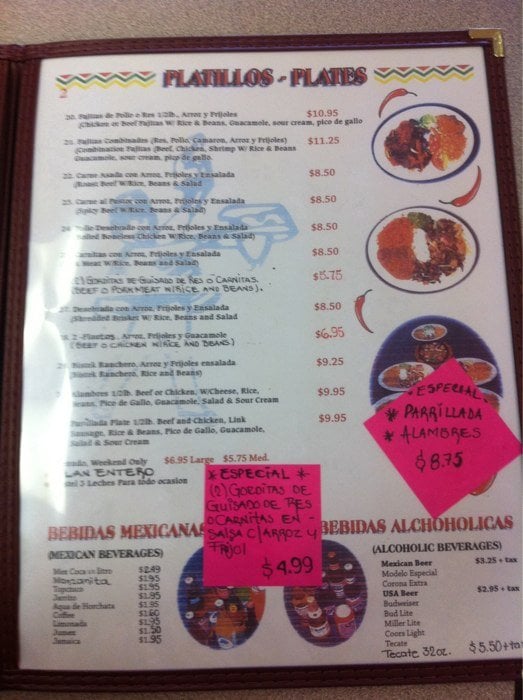 PLATILLOS - PLATES
2
20. Fajitas de Pollo o Res 1/2lb., Arroz y Frijoles $10.95
(Chicken or Beef Fajitas W/ Rice & Beans, Guacamole, sour cream, pico de gallo
21. Fajitas Combinadas (Res, Pollo, Camaron, Arroz y Frijoles) $11.25
(Combination Fajitas (Beef, Chicken, Shrimp W/ Rice & Beans
Guacamole, sour cream, pico de gallo.
22. Carne Asada con Arroz, Frijoles y Ensalada $8.50
(Roast Beef W/Rice, Beans & Salad
23. Carne al Pastor con Arroz, Frijoles y Ensalada $8.50
(Spicy Beef W/Rice, Beans & Salad)
24. Pollo Desebrado con Arroz, Frijoles y Ensalada $8.50
Boiled Boneless Chicken W/Rice, Beans & Salad)
Carnitas con Arroz, Frijoles y Ensalada $8.50
Meat W/Rice, Beans and Salad)
(2) GORDITAS DE GUISADO DE RES O CARNITAS. $5.75
(BEEF O PORK MEAT W/RICE AND BEANS).
27. Desebrada con Arroz, Frijoles y Ensalada $8.50
(Shredded Brisket W/ Rice, Beans and Salad
2 -Flautas, Arroz, Frijoles y Guacamole $6.95
(BEEF O CHICKEN W/RICE AND BEANS)
Bistek Ranchero, Arroz y Frijoles ensalada $9.25
(Bistek Ranchero, Rice and Beans)
Alambres 1/2lb. Beef or Chicken, W/Cheese, Rice, $9.95
Beans, Pico de Gallo, Guacamole, Salad & Sour Cream
Parrillada Plate 1/2lb. Beef and Chicken, Link $9.95
Sausage, Rice & Beans, Pico de Gallo, Guacamole,
Salad & Sour Cream
Weekend Only $6.95 Large $5.75 Med.
FLAN ENTERO
3 Leches Para todo ocasion
* ESPECIAL
* PARRILLADA
* ALAMBRES
$8.75
* ESPECIAL *
(2) GORDITAS DE
GUISADO DE RES
O CARNITAS EN -
SALSA C/ARROZ Y
FRIJOL
$4.99
BEBIDAS MEXICANAS
(MEXICAN BEVERAGES)
Mex Coca 1/2 litro $2.49
Manzanita $1.95
Topochico $1.95
Jarrito $1.95
Agua de Horchata $1.95
Coffee $1.60
Limonada $1.95
Jumex $1.50
Jamaica $1.95
BEBIDAS ALCHOHOLICAS
(ALCOHOLIC BEVERAGES)
Mexican Beer $3.25 + tax
Modelo Especial
Corona Extra
USA Beer $2.95 + tax
Budweiser
Bud Lite
Miller Lite
Coors Light
Tecate
Tecate 32oz. $5.50+ta